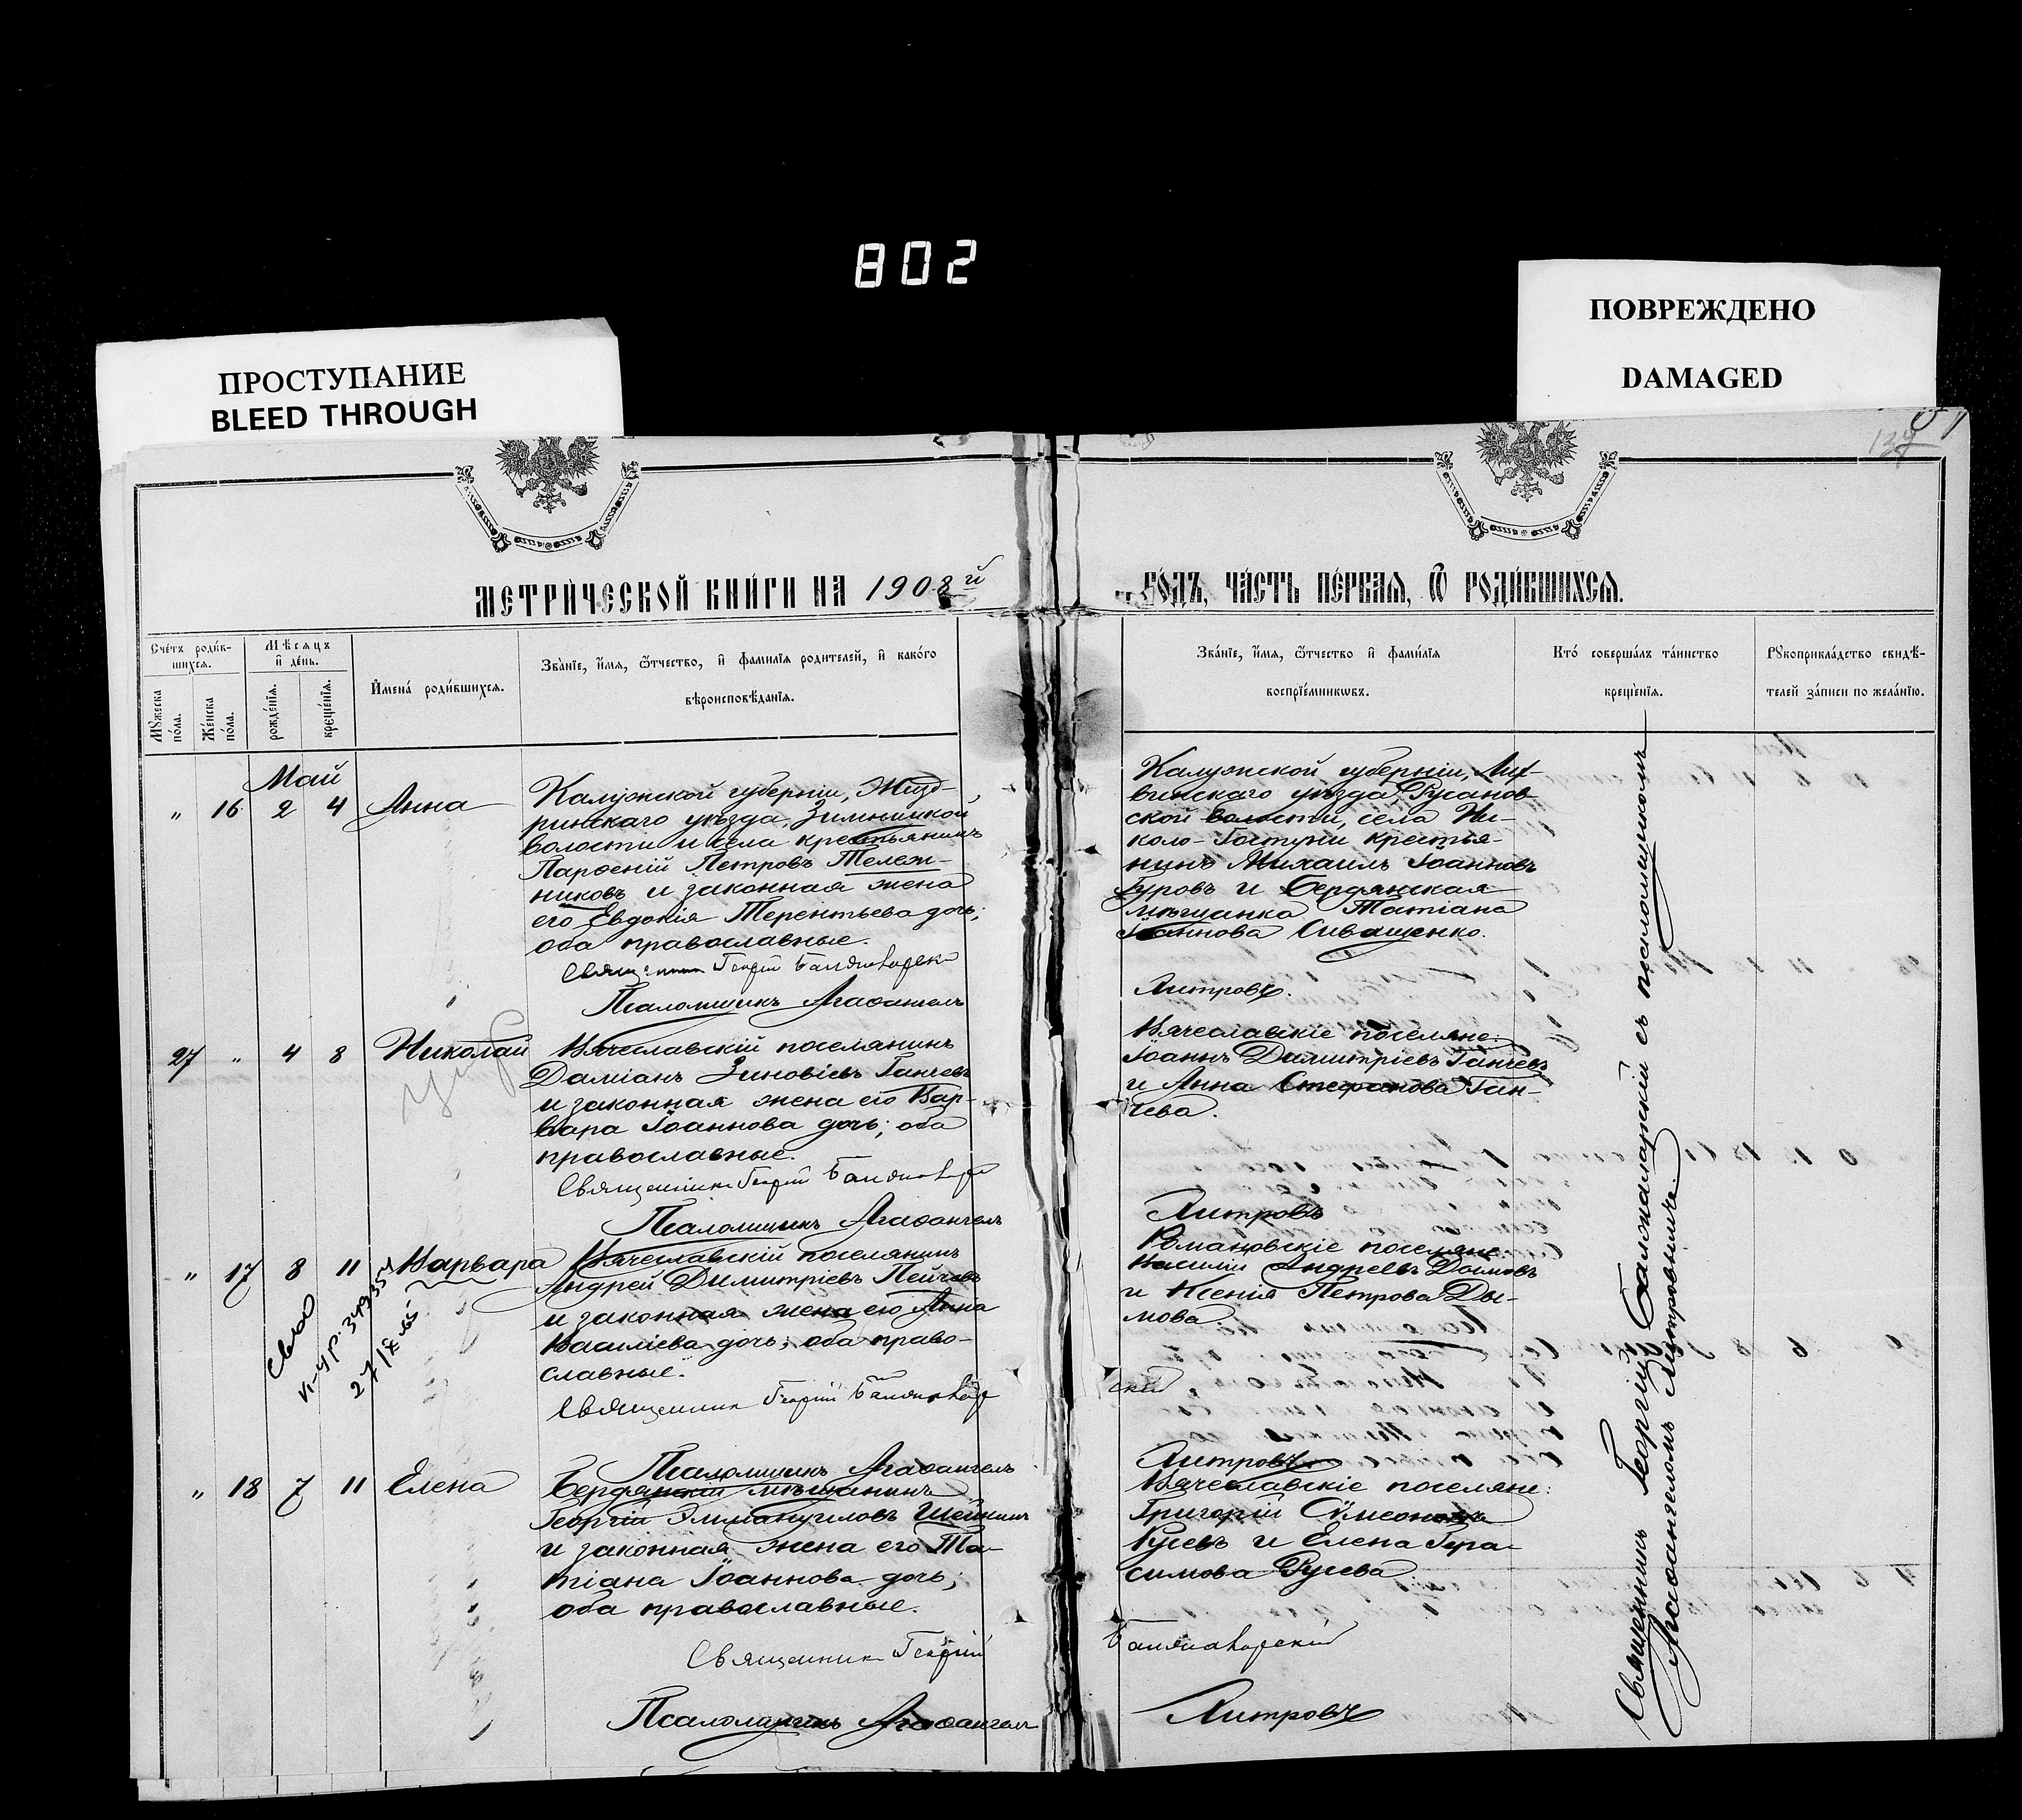 802
ПРОСТУПАНИЕ
BLEED THROUGH
ПОВРЕЖДЕНО
DAMAGED
МЕТРИ́ЧЕСКОЙ КНИ́ГИ НА 1908й
ГО́ДЪ, ЧА́СТЬ ПЕ́РВАЯ, Ѿ РОДИ́ВШИХСЯ.
Сче́тъ роди́в-
шихся.
Мꙋжеска по́ла.
Же́нска по́ла.
Мѣ́сяцъ
и҆ де́нь.
рожде́нїя.
креще́нїя.
И҆мена́ роди́вшихся.
Зва́нїе, и҆́мя, ѻ҆́тчество, и҆ фами́лїя роди́телей, и҆ како́го
вѣроисповѣ́данїя.
Зва́нїе, и҆́мя, ѻ҆́тчество и҆ фами́лїя
воспрїе́мникѡвъ.
Кто̀ соверша́лъ та́инство
креще́нїя.
Рꙋкоприкла́дство свидѣ́-
телей за́писи по жела́нїю.
Май
" 16 2 4 Анна
Калужской губерніи, Жизд-
ринскаго уѣзда, Зимницкой
волости и села крестьянинъ
Парѳеній Петровъ Тележ-
никовъ и законная жена
его Евдокія Терентьева дочь;
оба православные.
Священникъ Георгій
Псаломщикъ Агаѳангелъ
Калужской губерніи, Лих-
винскаго уѣзда, Русанов
ской волости, села Ни-
коло-Гостуни крестья-
нинъ Михаилъ Іоанновъ
Гуровъ и Бердянская
мѣщанка Татіана
Іоаннова Иващенко.
Литровъ.
27 " 4 8 Николай
Вячеславскій поселянинъ
Даміанъ Зиновіевъ Ганчевъ
и законная жена его Вар-
вара Іоаннова дочь; оба
православные.
Священникъ Георгій
Псаломщикъ Агаѳангелъ
Вячеславскіе поселяне:
Іоаннъ Димитріевъ Ганчевъ
и Анна Стефанова Ган-
чева.
Литровъ
" 17 8 11 Варвара
27/IX 65
Вячеславскій поселянинъ
Андрей Димитріевъ Пейчевъ
и законная жена его Анна
Василіева дочь; оба право-
славные.
Священникъ Георгій
скій
Псаломщикъ Агаѳангелъ
Романовскіе поселяне:
Василій Андреевъ Дымовъ
и Ксенія Петрова Ды-
мова.
Литровъ
" 18 7 11 Елена
Бердянскій мѣщанинъ
Георгій Эммануиловъ
и законная жена его Та-
тіана Іоаннова дочь;
оба православные.
Священникъ Георгій
Псаломщикъ Агаѳангелъ
Вячеславскіе поселяне:
Григорій Сѵмеоновъ
Русевъ и Елена Гера-
симова Русева.
Балжаларскій
Литровъ
Священникъ Георгій Балжаларскій съ псаломщикомъ
Агаѳангеломъ Литровымъ.